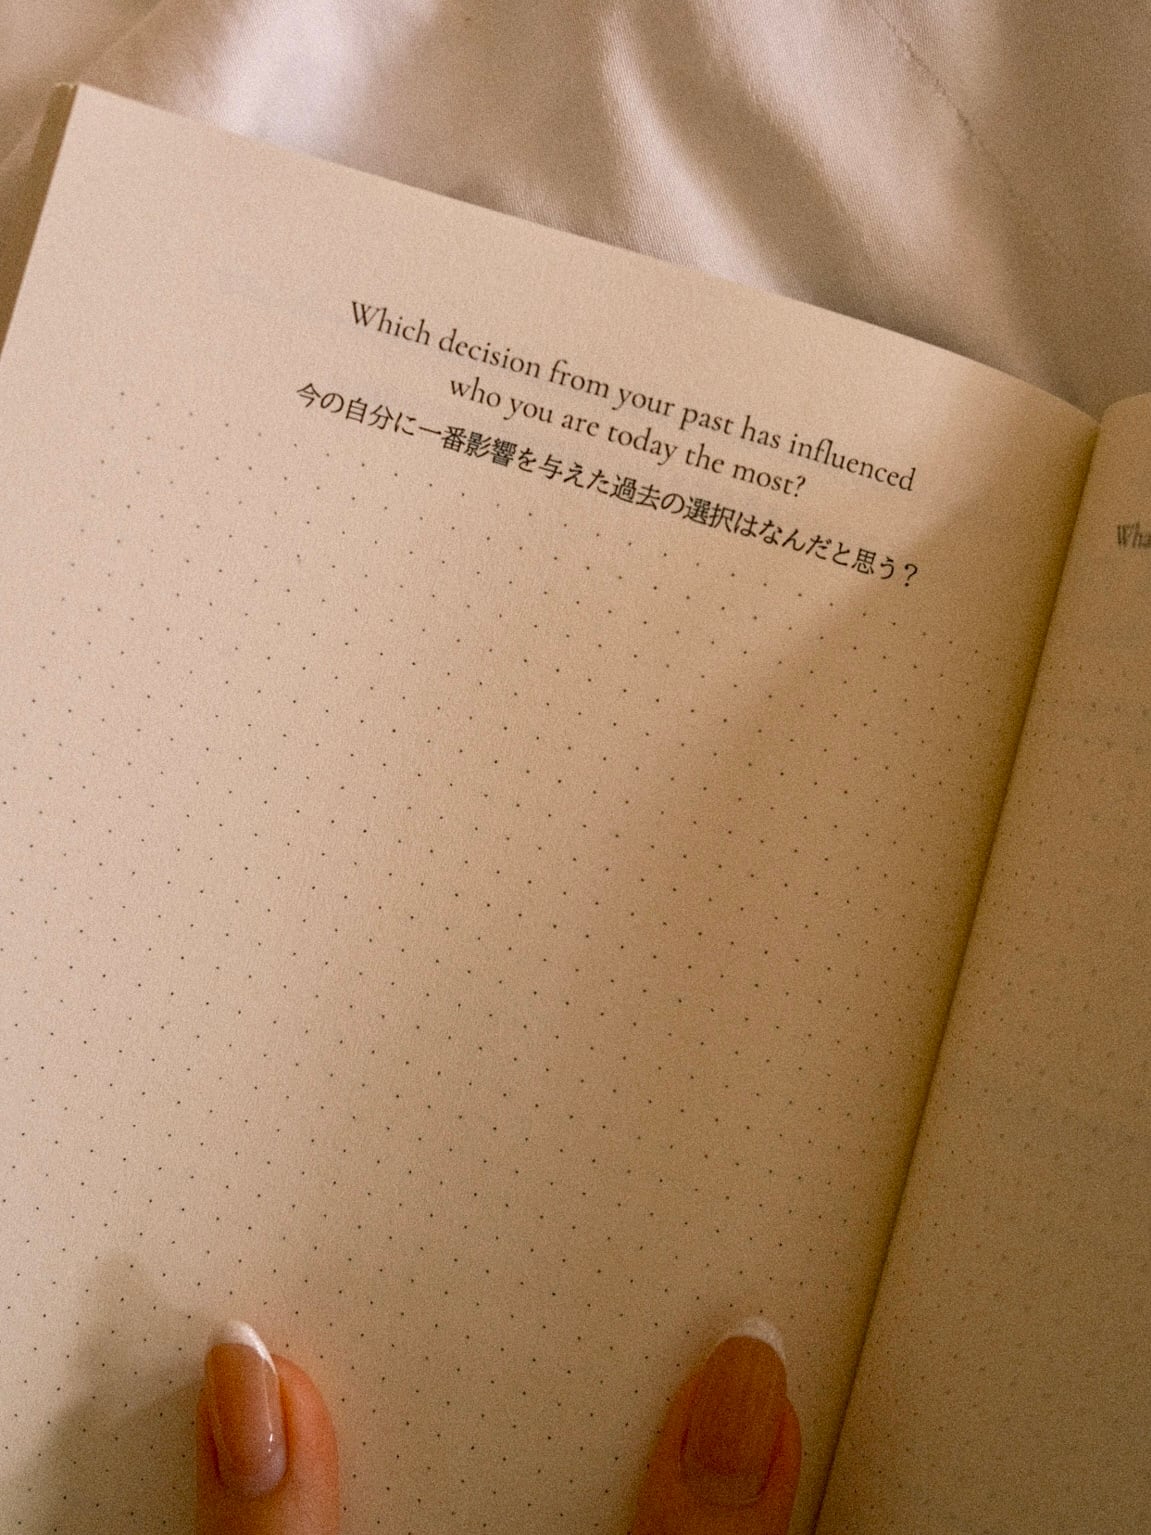 Which decision from your past has influenced
who you are today the most?
今の自分に一番影響を与えた過去の選択はなんだと思う？